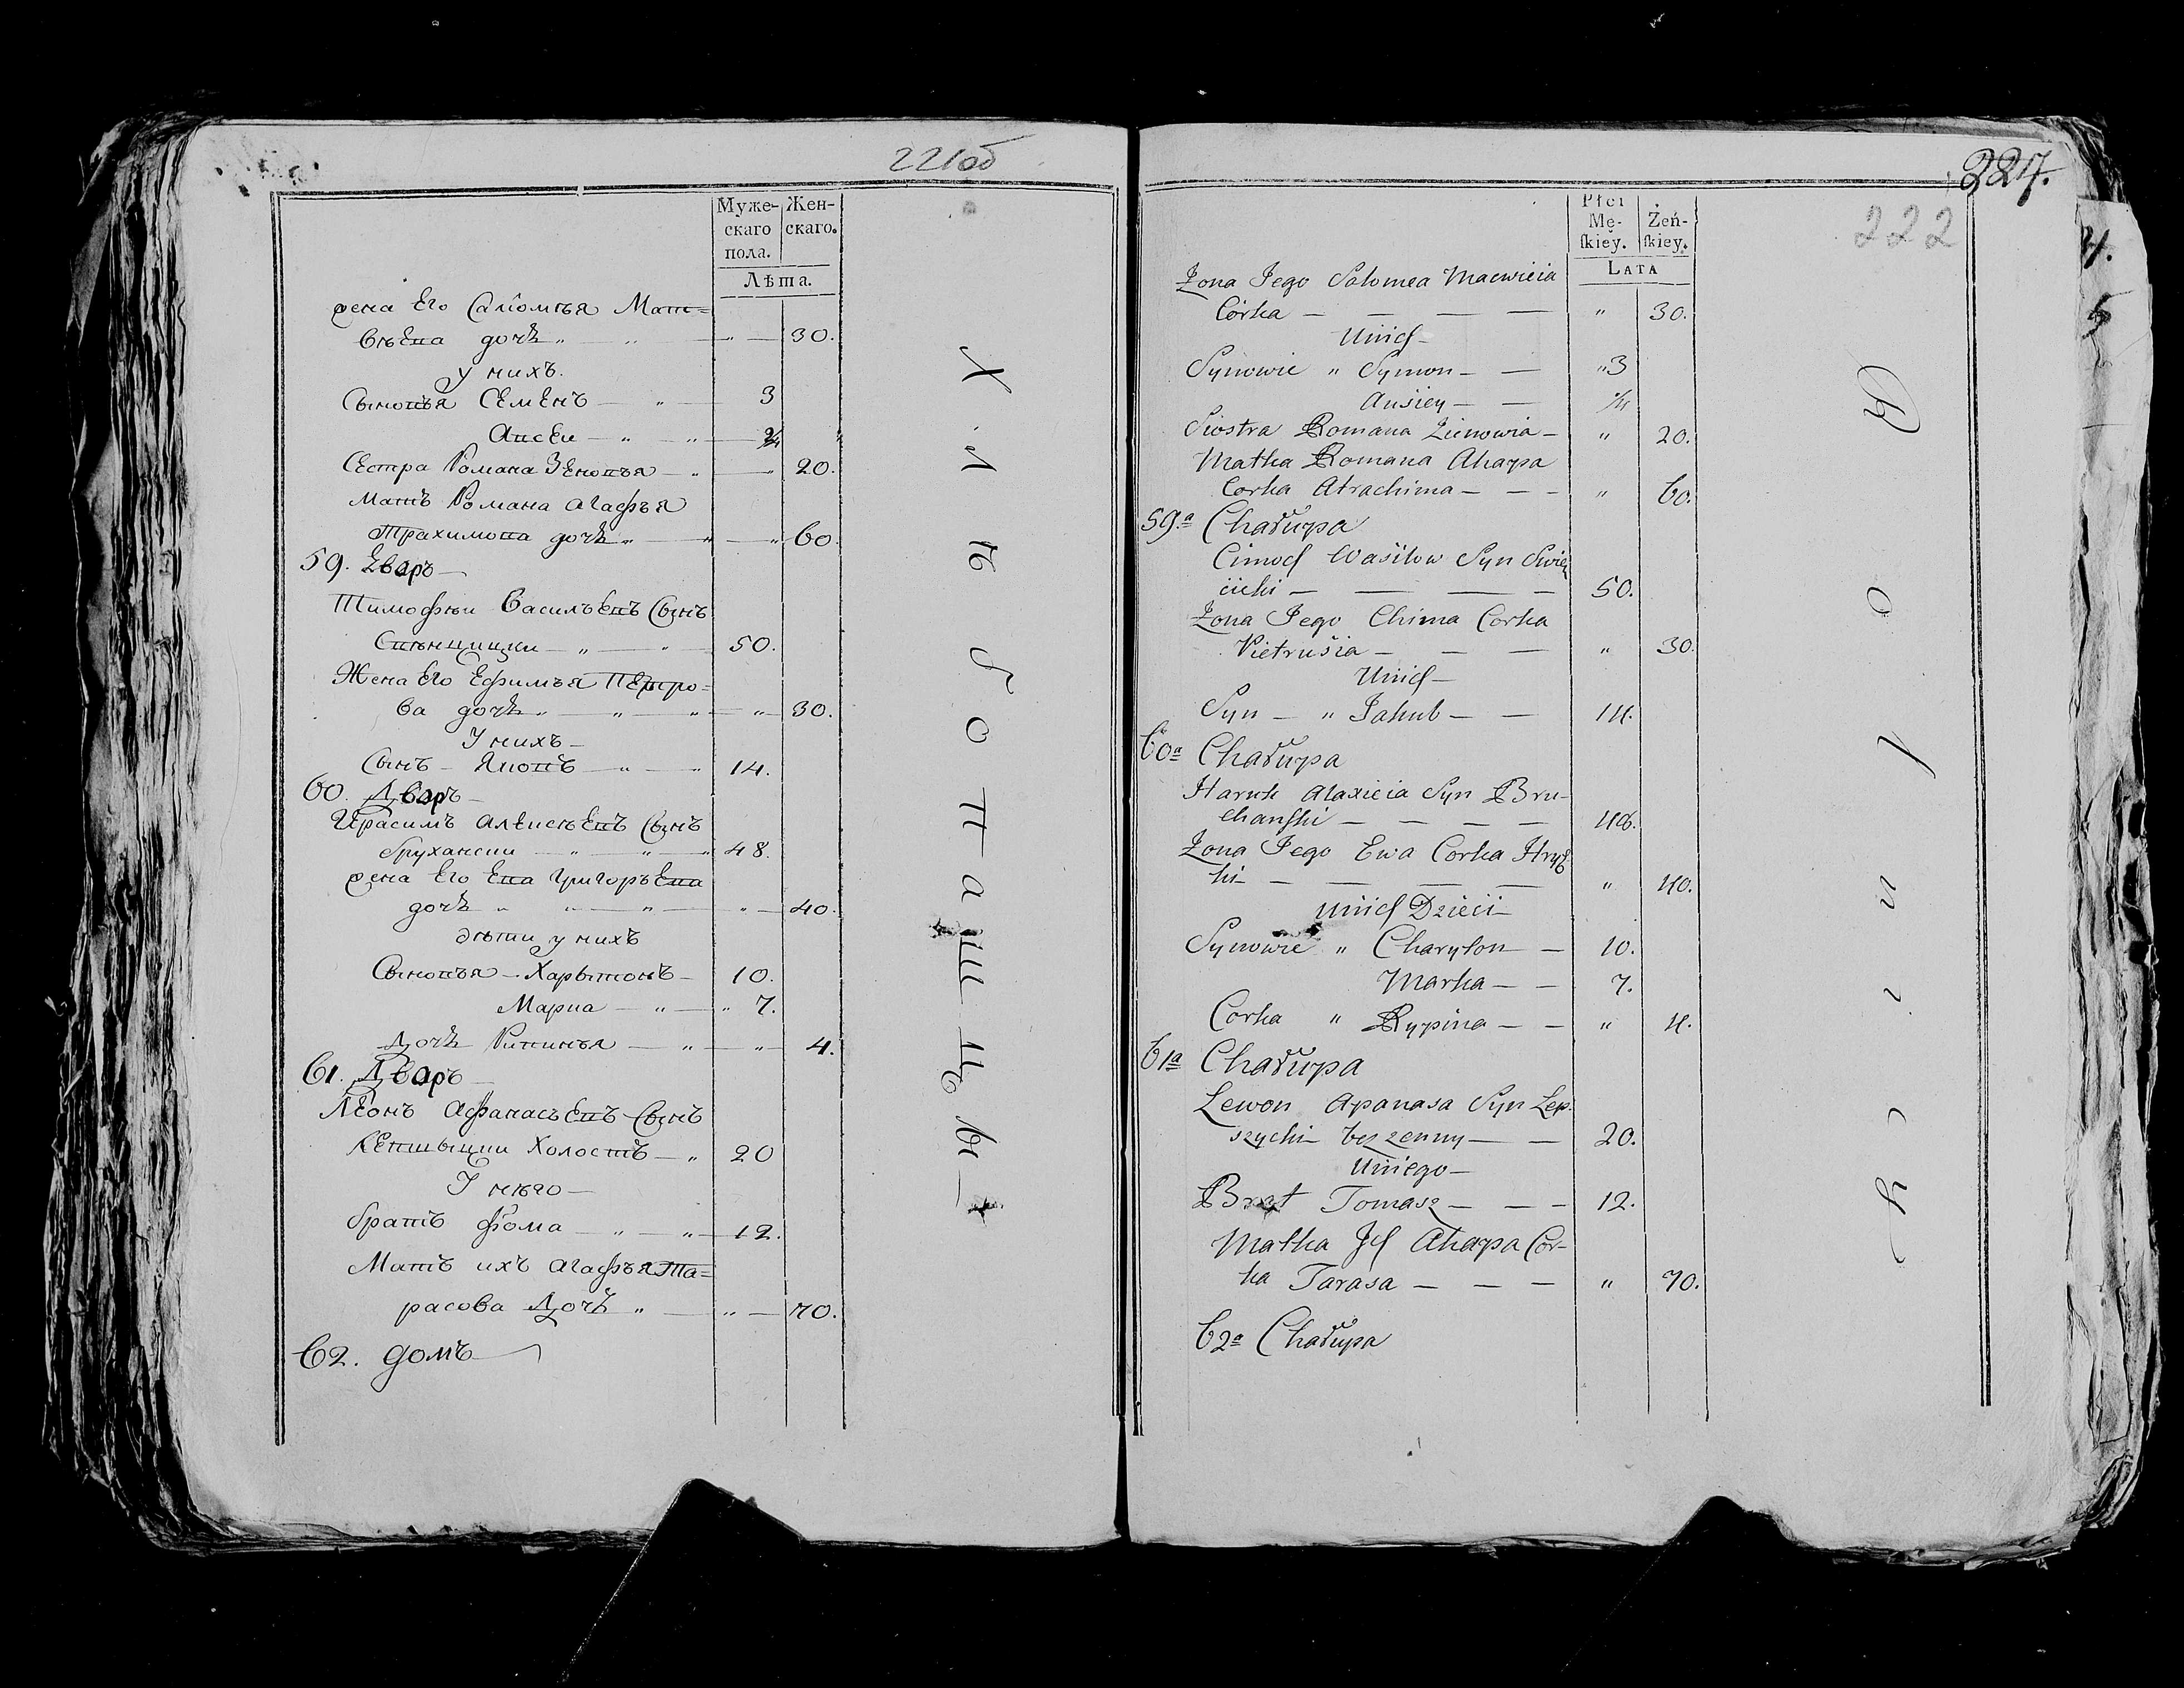 221об
Муже-
скаго
пола.
Жен-
скаго.
Лѣта.
жена Его Саломѣя Мат=
вѣева дочь " " " 30.
у нихъ.
Сыновья Семенъ — " — 3
Авсеи — " — "
Сестра Романа Зеновья — " — " 20.
Мать Романа Агафья
Трахимова дочь " — " — " 60.
59. Дворъ —
Тимофѣи Васильевъ Сынъ
— " — " 50.
Жена Его Ефимья Петро=
ва дочь " — " — " — " 30.
У нихъ —
Сынъ — Яковъ — " — " 14.
60. Дворъ —
Ирасимъ Алексѣевъ Сынъ
Брухански — " — " — " 48.
жена Его Ева Григорьева
дочь " " — " — " — 40.
дѣти у нихъ
Сыновья — Харытонъ — 10.
Марка — " — " 7.
Дочь Рипинья — " — " — 4.
61. Дворъ —
Леонъ Афанасьевъ Сынъ
Лепшыцки Холостъ — " 20
У нѣго —
братъ фома — " — " — 12.
Мать ихъ Агафья Та=
расова Дочь " — " — 70.
62. домъ —
Хлѣбопашцы —
227.
222
Płci
Mę-
skiey.
Żeń-
skiey.
LATA
Żona Jego Salomea Macwieia
Córka — — — — " 30.
Unich —
Synowie " Symon — — "3
Ausiey — — 1/4
Siostra Romana Zienowia — " 20.
Matka Romana Ahapa
Corka Atrachima — — — " 60.
59.a Chałupa
Cimoch Wasilow Syn
— — — — 50.
Żona Jego Chima Corka
Pietrusia — — — " 30.
Unich —
Syn — " Jakub — — 14.
60a Chałupa
Harusk Alaxieia Syn Bru-
chanski — — — — 48.
Żona Jego Ewa Corka Hryh
ki — — — — " 40.
Unich Dzieci —
Synowie " Charyton — 10.
Marka — — 7.
Corka " Rypina — — " 4.
61a Chałupa
Lewon Apanasa Syn Lep-
szycki bezzenny — — 20.
Uniego —
Brat Tomasz — — — 12.
Matka Jch Ahapa Cor-
ka Tarasa — — — " 70.
62a Chałupa
Rolnicy
4.
5